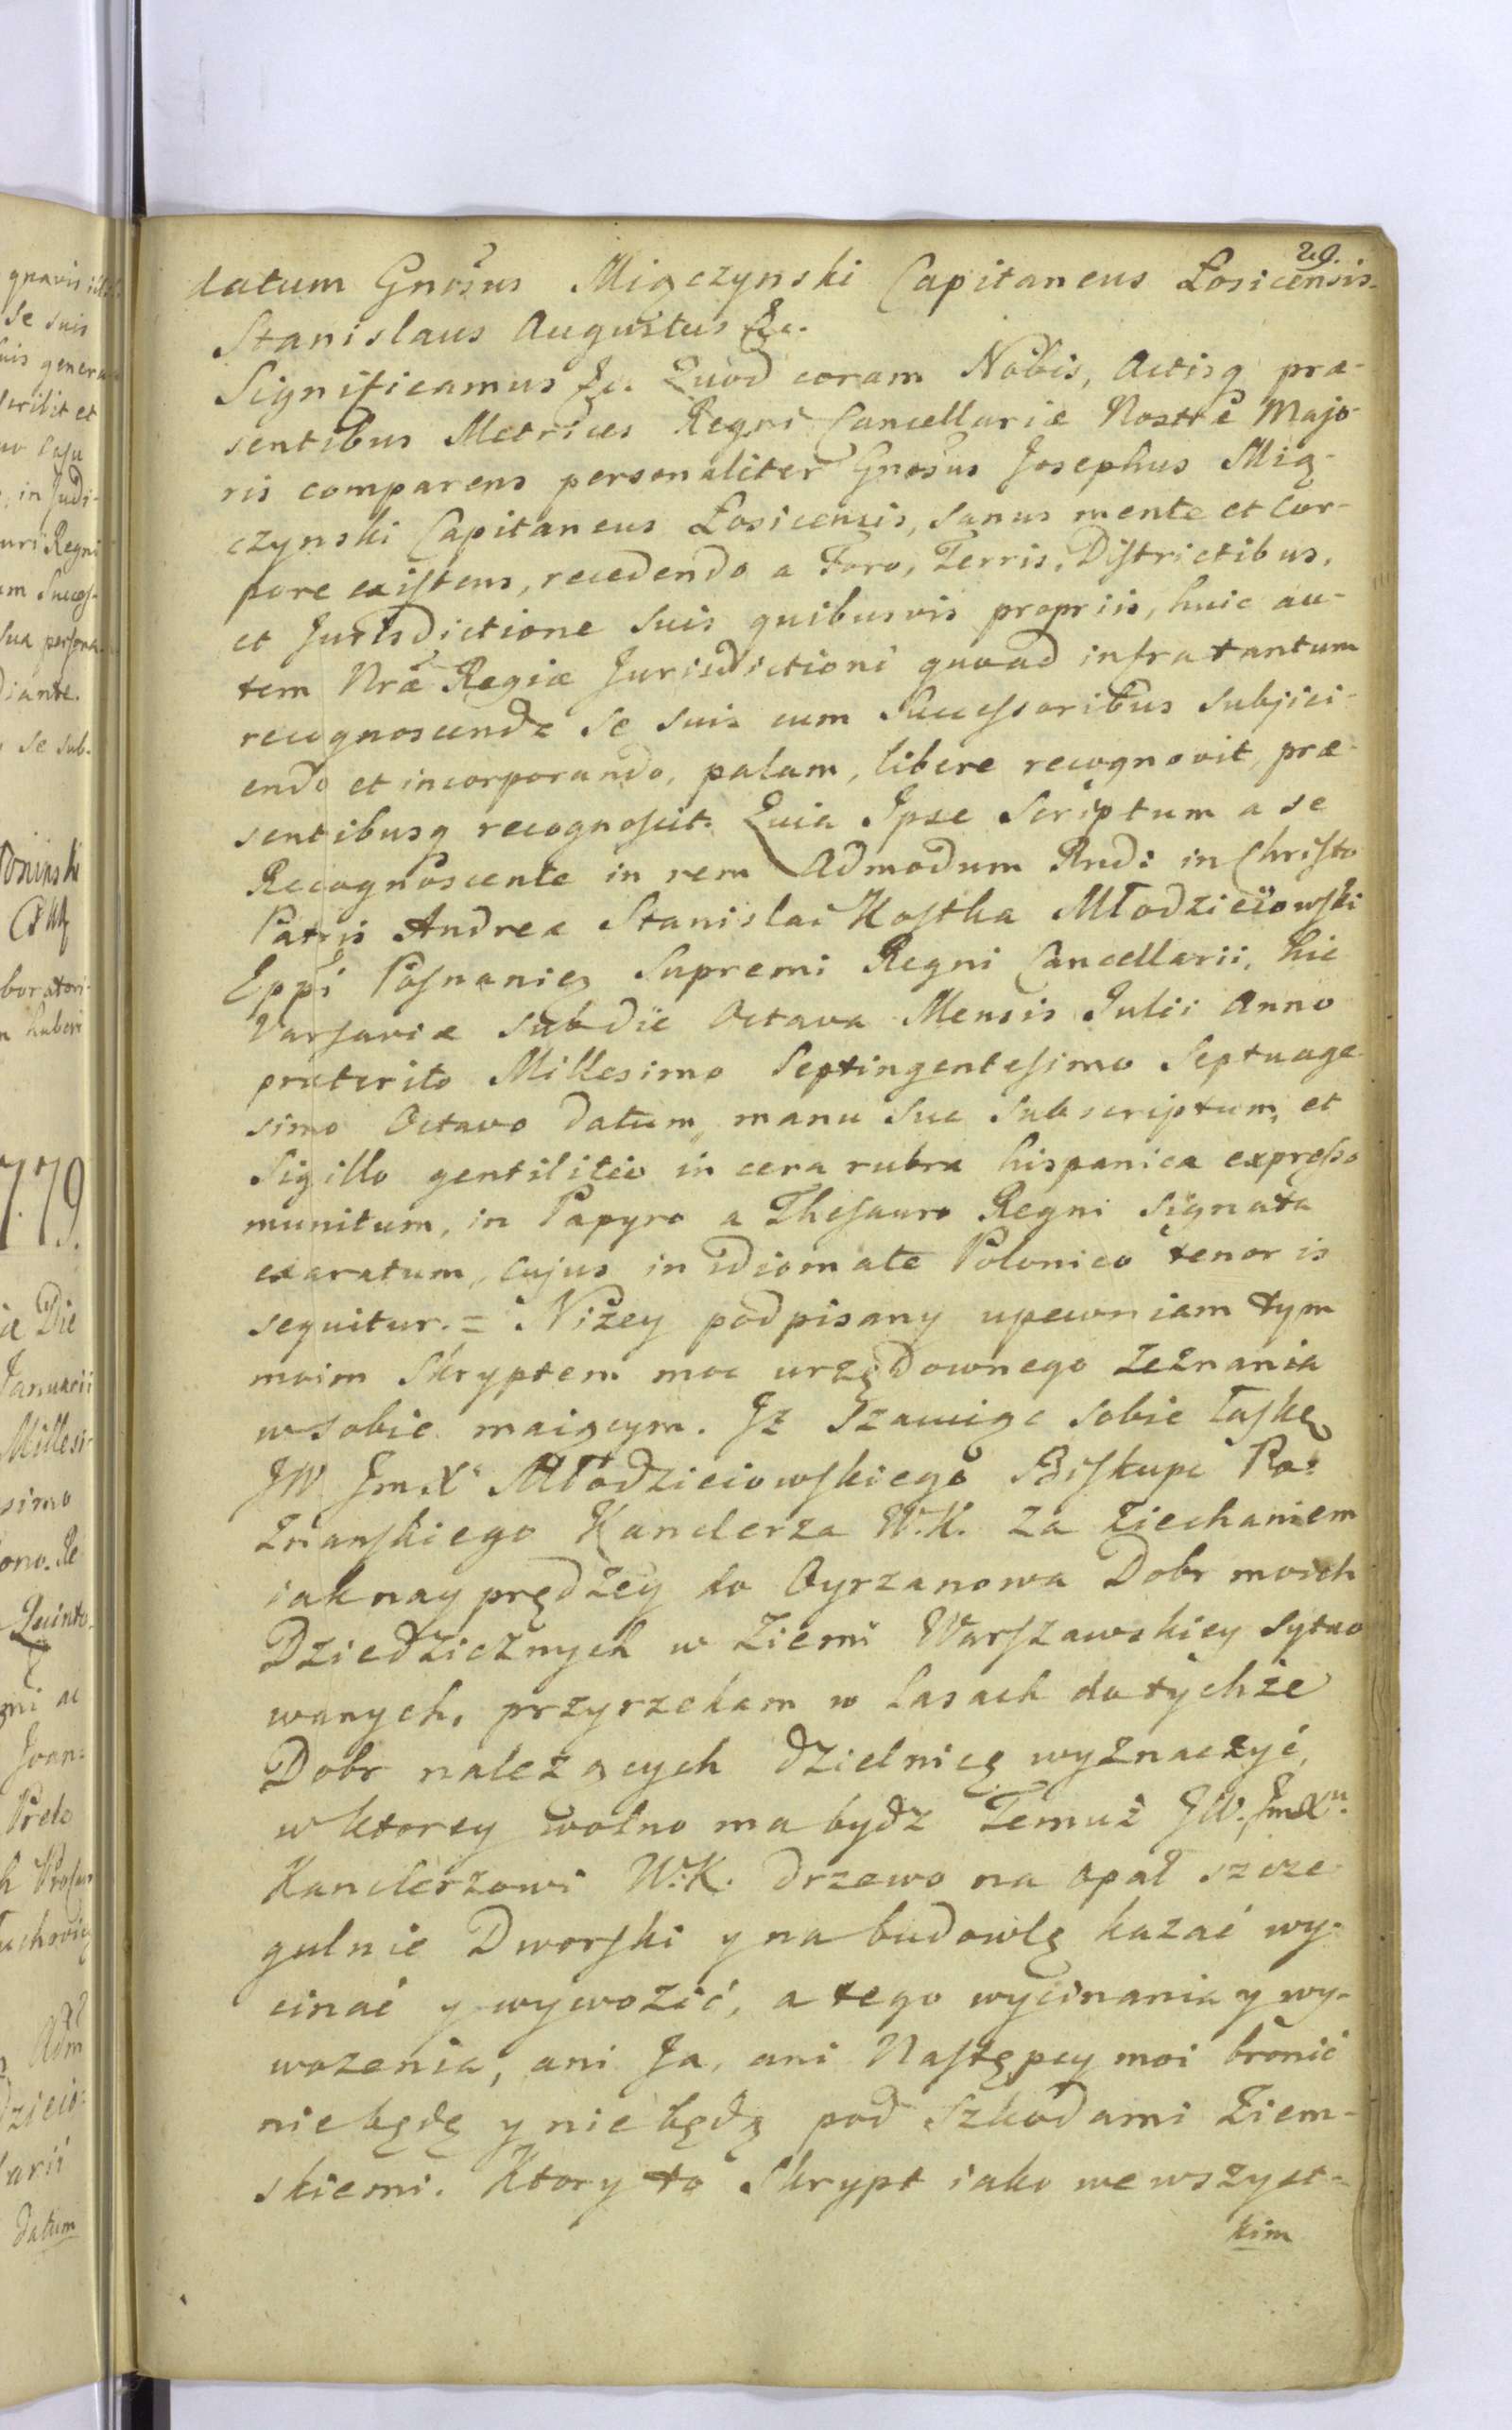 29.
datum Gnosus Miączynski Capitaneus Łosicensis.
Stanislaus Augustus &c.
Significamus &c. Quod coram Nobis, Actisq præ-
sentibus Metrices Regni Cancellariæ Nostræ Majo-
ris comparens personaliter Gnosus Josephus Mią-
czynski Capitaneus Łosicensis, sanus mente et Cor-
pore existens, recedendo a Foro, Terris, Districtibus,
et Jurisdictione suis quibusvis propriis, huic au-
tem Nræ Regiæ Jurisdictioni quoad infra tantum
recognoscenda se suis cum Successoribus subjici-
endo et incorporando, palam, libere recognovit, præ-
sentibusq recognoscit. Quia Ipse Scriptum a se
Recognoscente in rem Admodum Rndi in Christo
Patris Andreæ Stanislai Kostka Młodzieiowski
Eppi Posnanien Supremi Regni Cancellarii, hic
Varsaviæ sub die Octava Mensis Julii Anno
præterito Millesimo Septingentesimo Septuage-
simo Octavo datum, manu sua subscriptum, et
Sigillo gentilitio in cera rubra hispanica expresso
munitum, in Papyro a Thesauro Regni signata
exaratum, cujus in idiomate Polonico tenor is
sequitur. = Niżey podpisany upewniam tym
moim Skryptem moc urzędownego zeznania
w sobie maiącym. Iż szacuiąc sobie łaskę
JW Jmć X Młodzieiowskiego Biskupa Po-
znanskiego Kanclerza W.K. za ziechaniem
iak nayprędzey do Oyrzanowa Dobr moich
Dziedzicznych w Ziemi Warszawskiey sytuo
wanych, przyrzekam w Lasach do tychże
Dobr należących dzielnicę wyznaczyć,
w ktorey wolno ma bydz Temuż JW. Jmć Xu.
Kanclerzowi W.K. drzewo na opał szcze-
gulnie Dworski y na budowlę kazać wy-
cinać y wywozić, a tego wycinania y wy-
wozenia, ani Ja, ani Następcy moi bronić
nie będę y nie będą pod Szkodami Ziem-
skiemi. Ktory to Skrypt iako we wszyst-
kim